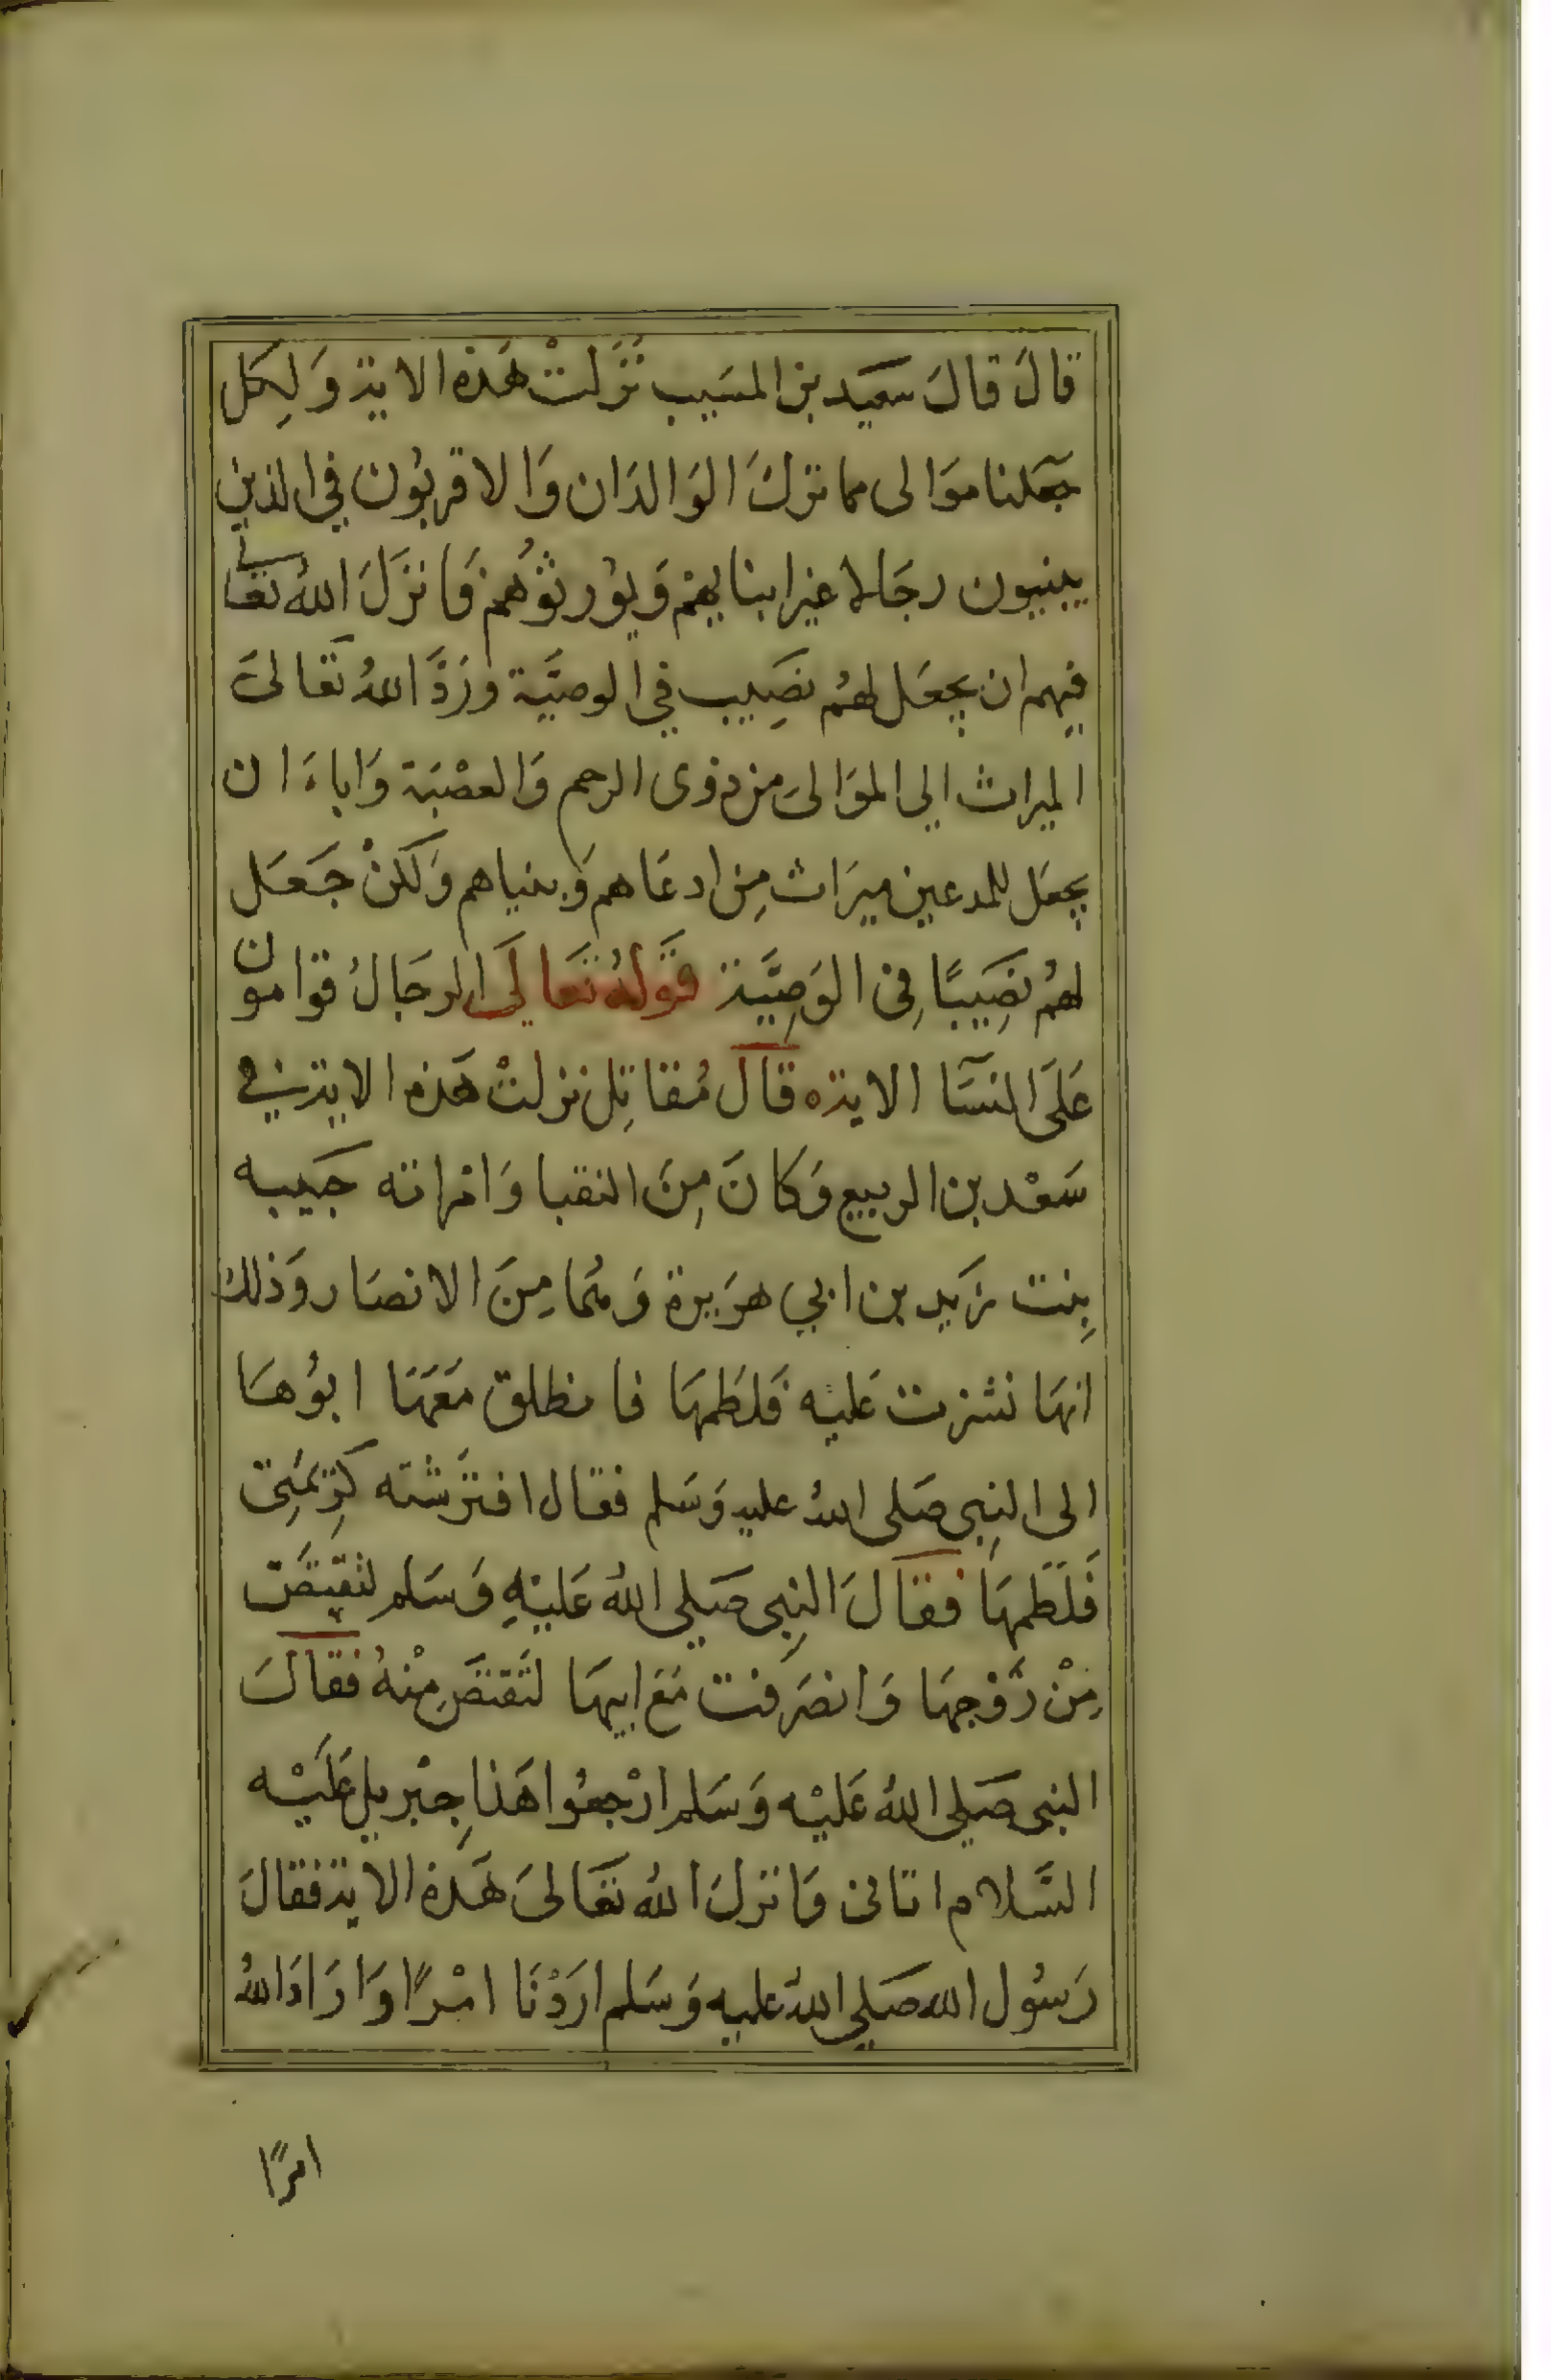 قَالَ قَالَ سَعِيد بن المسَيب نَزَلَتْ هَذه الاية وَلِكل
جَعَلنا موَالى مما تركَ الوَالدَان وَالاقربُون في الذين
يبنيون رجَالا غير ابنايهمْ وَيوُرثوُهُمْ فَانزَلَ اللهُ تعَالى
فيهم ان يجعَل لهُم نصِيب في الوصيَّة وَرَدَّ اللهُ تعَالىَ
الميراث الي الموَالىَ من ذوى الرحم وَالعصْبَة وَاباءَ ان
يجعَل للمدعين ميرَاث مِن ادعَاهم وَبنياهم وَلكنْ جَعَل
لهُم نصِيبًا فِى الوَصِيَّة قَولهُ تعَالَى الرجَالُ قوامون
عَلَى النسَآا الاية ه قَالَ مُقاتِل نزلتْ هَذه الاية في
سَعْد بن الربيع وَكَانَ مِنَ النقبا وَامْراته حَبيبه
بِنت زَيد بن ابي هرَيرة وَهُمَا مِنَ الانصَار وَذلك
انهَا نشزت عَليه فَلطَمهَا فانطلق مَعَهَا ابوُهَا
الى النبِى صَلى اللهُ عليه وَسَلم فقال افترَشته كَرِيمَتِى
فَلَطَمهَا فَقَالَ النبِى صَلي اللهُ عَليْهِ وَسَلم لتقتصَّ
مِنْ زَّوْجهَا وَانصَرفت مَعَ ابيهَا لتَقتصَّ مِنْهُ فقَالَ
النبى صَلي اللهُ عَليْه وَسَلم ارْجعُوا هَذا جِبْريل عَلَيْه
السَّلام اتانى وَانزلَ اللهُ تعَالىَ هَذه الاية فقالَ
رَسُول الله صَلي اللهُ عليه وَسَلم ارَدْنَا امْرًا وَارَادَ اللهُ
امرًا